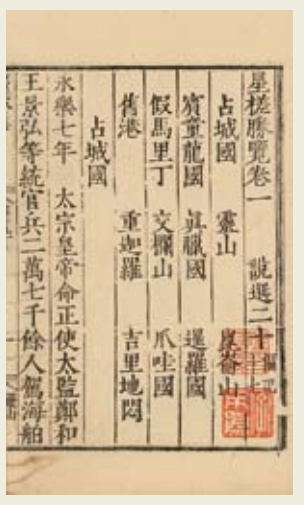 星槎勝覽卷一 說選二十
占城國 靈山 崑崙山
賓童龍國 眞臘國 暹羅國
假馬里丁 交欄山 爪哇國
舊港 重迦羅 吉里地悶
占城國
永樂七年 太宗皇帝命正使太監鄭和
王景弘等統官兵二萬七千餘人駕海舶